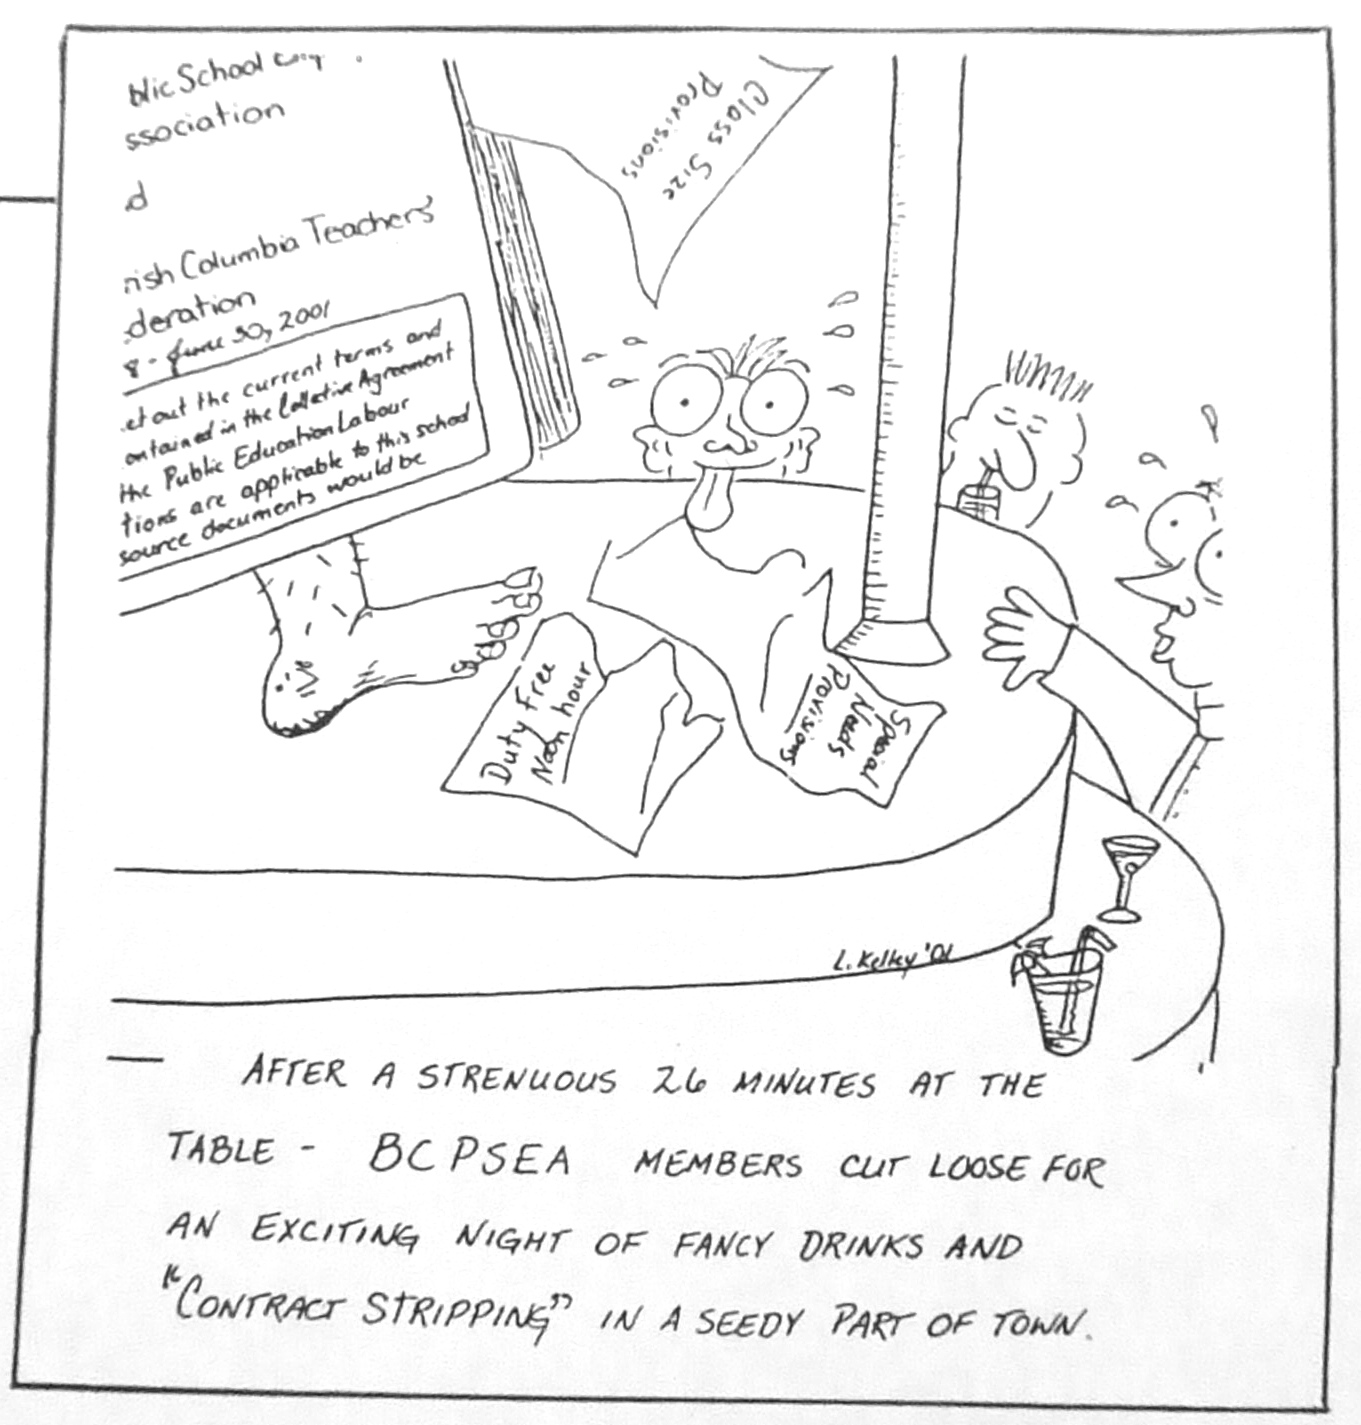 blic School
ssociation
d
rish Columbia Teachers'
deration
8 - June 30, 2001
et out the current terms and
ontained in the Collective Agreement
the Public Education Labour
tions are applicable to this school
source documents would be
Class Size
Provisions
Duty Free
Noon hour
Special
Needs
Provisions
L. Kelley '01
AFTER A STRENUOUS 26 MINUTES AT THE
TABLE - BCPSEA MEMBERS CUT LOOSE FOR
AN EXCITING NIGHT OF FANCY DRINKS AND
"CONTRACT STRIPPING" IN A SEEDY PART OF TOWN.